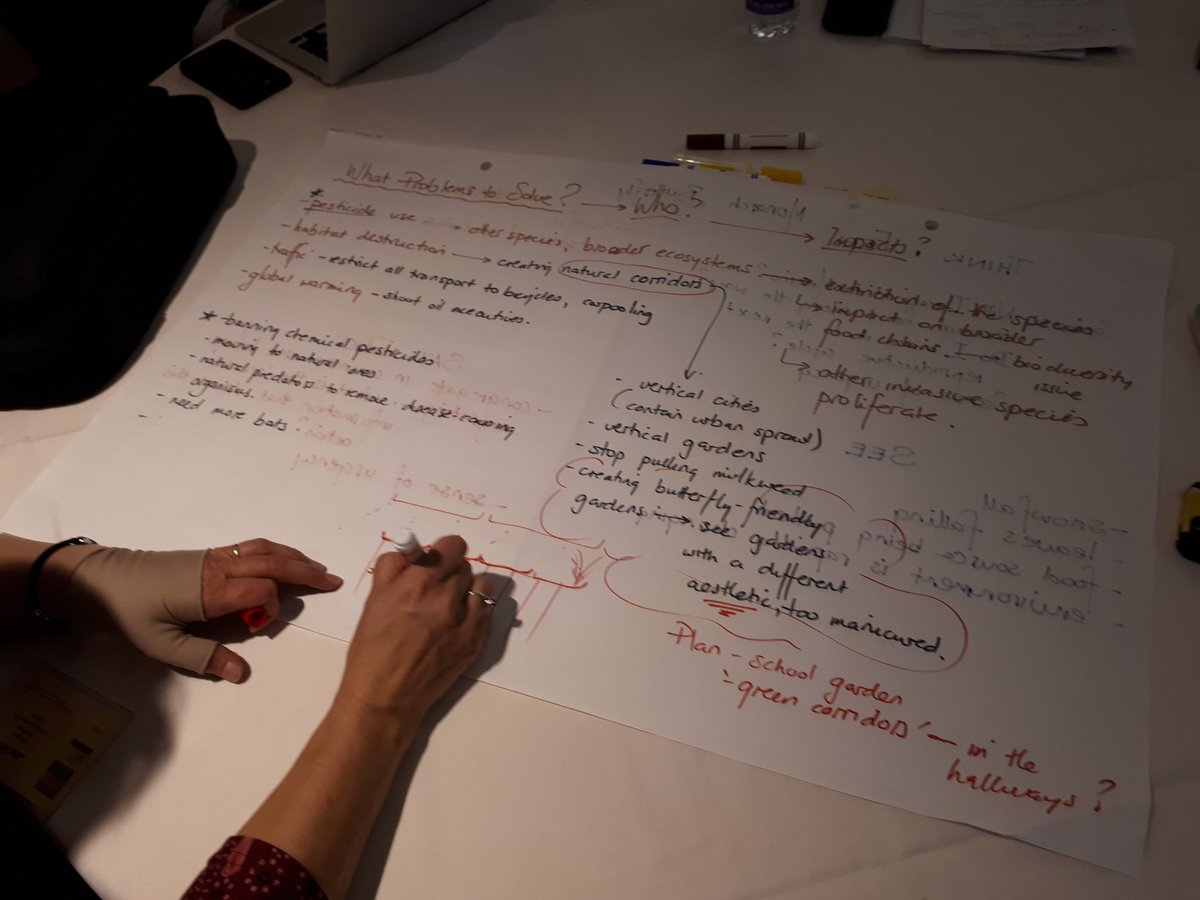 What Problems to Solve? → Who? → Impacts?
*
- pesticide use → other species, broader ecosystems → extinction of the species
- habitat destruction → creating natural corridors
↳ impact on broader food chains. → biodiversity issue
↳ other invasive species proliferate.
- traffic - restrict all transport to bicycles, carpooling
- global warming - shoot oil executives.
* - banning chemical pesticides
- moving to natural ones
- natural predators to remove disease causing
organisms.
- need more bats.
-
- vertical cities
(contain urban sprawl)
- vertical gardens
- stop pulling milkweed
- creating butterfly-friendly
gardens → see gardens
with a different
aesthetic, too manicured.
Plan - school garden
- 'green corridors' - in the
hallways?
Monarch Butterfly
THINK
SEE
- snowfall
- leaves falling
- food source being
- environment is
- sense of urgency